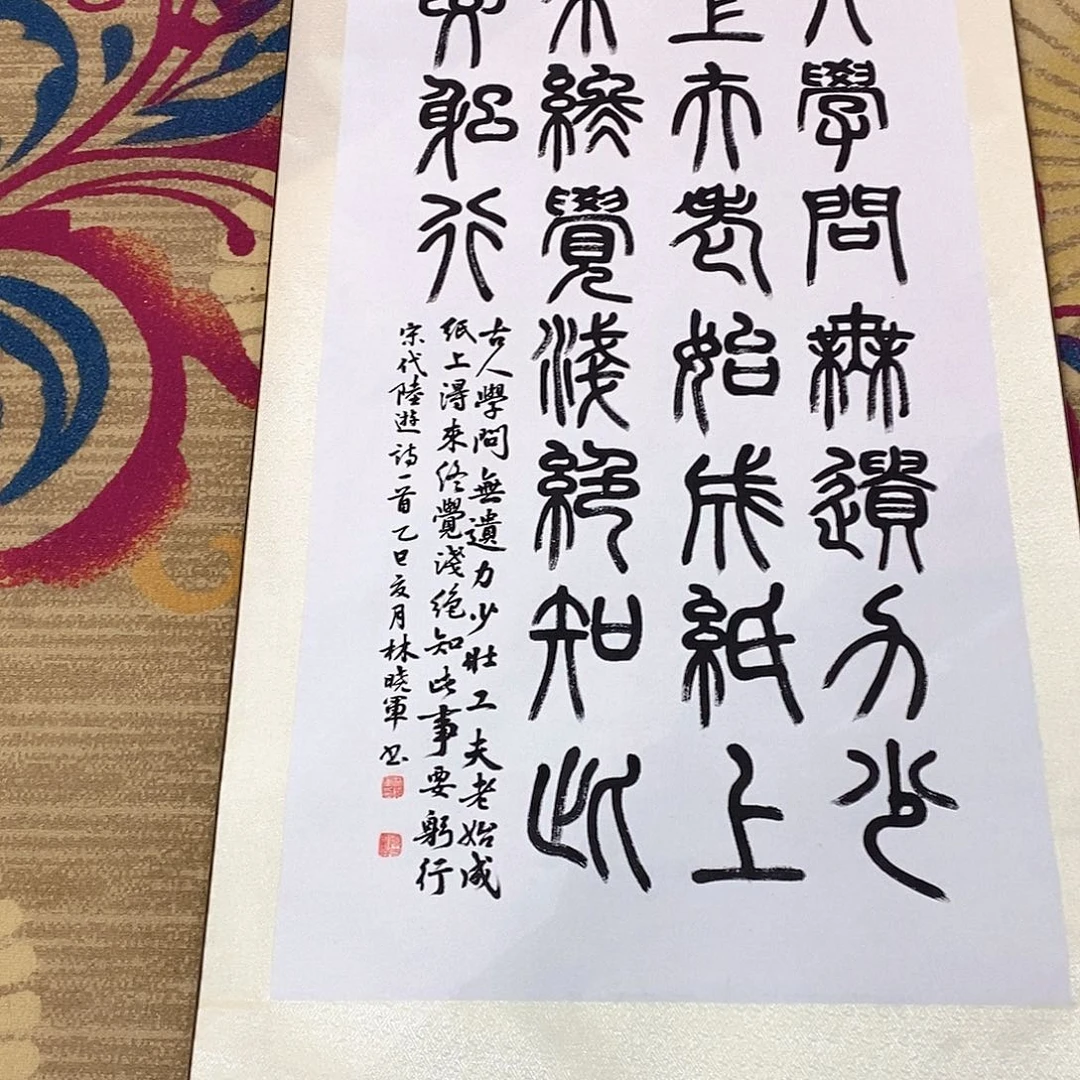 人學問無遺力少
工夫老始成紙上
來終覺淺絕知此
要躬行
古人學問無遺力少壯工夫老始成
紙上得來終覺淺絕知此事要躬行
宋代陸遊詩一首乙巳亥月林晓軍书